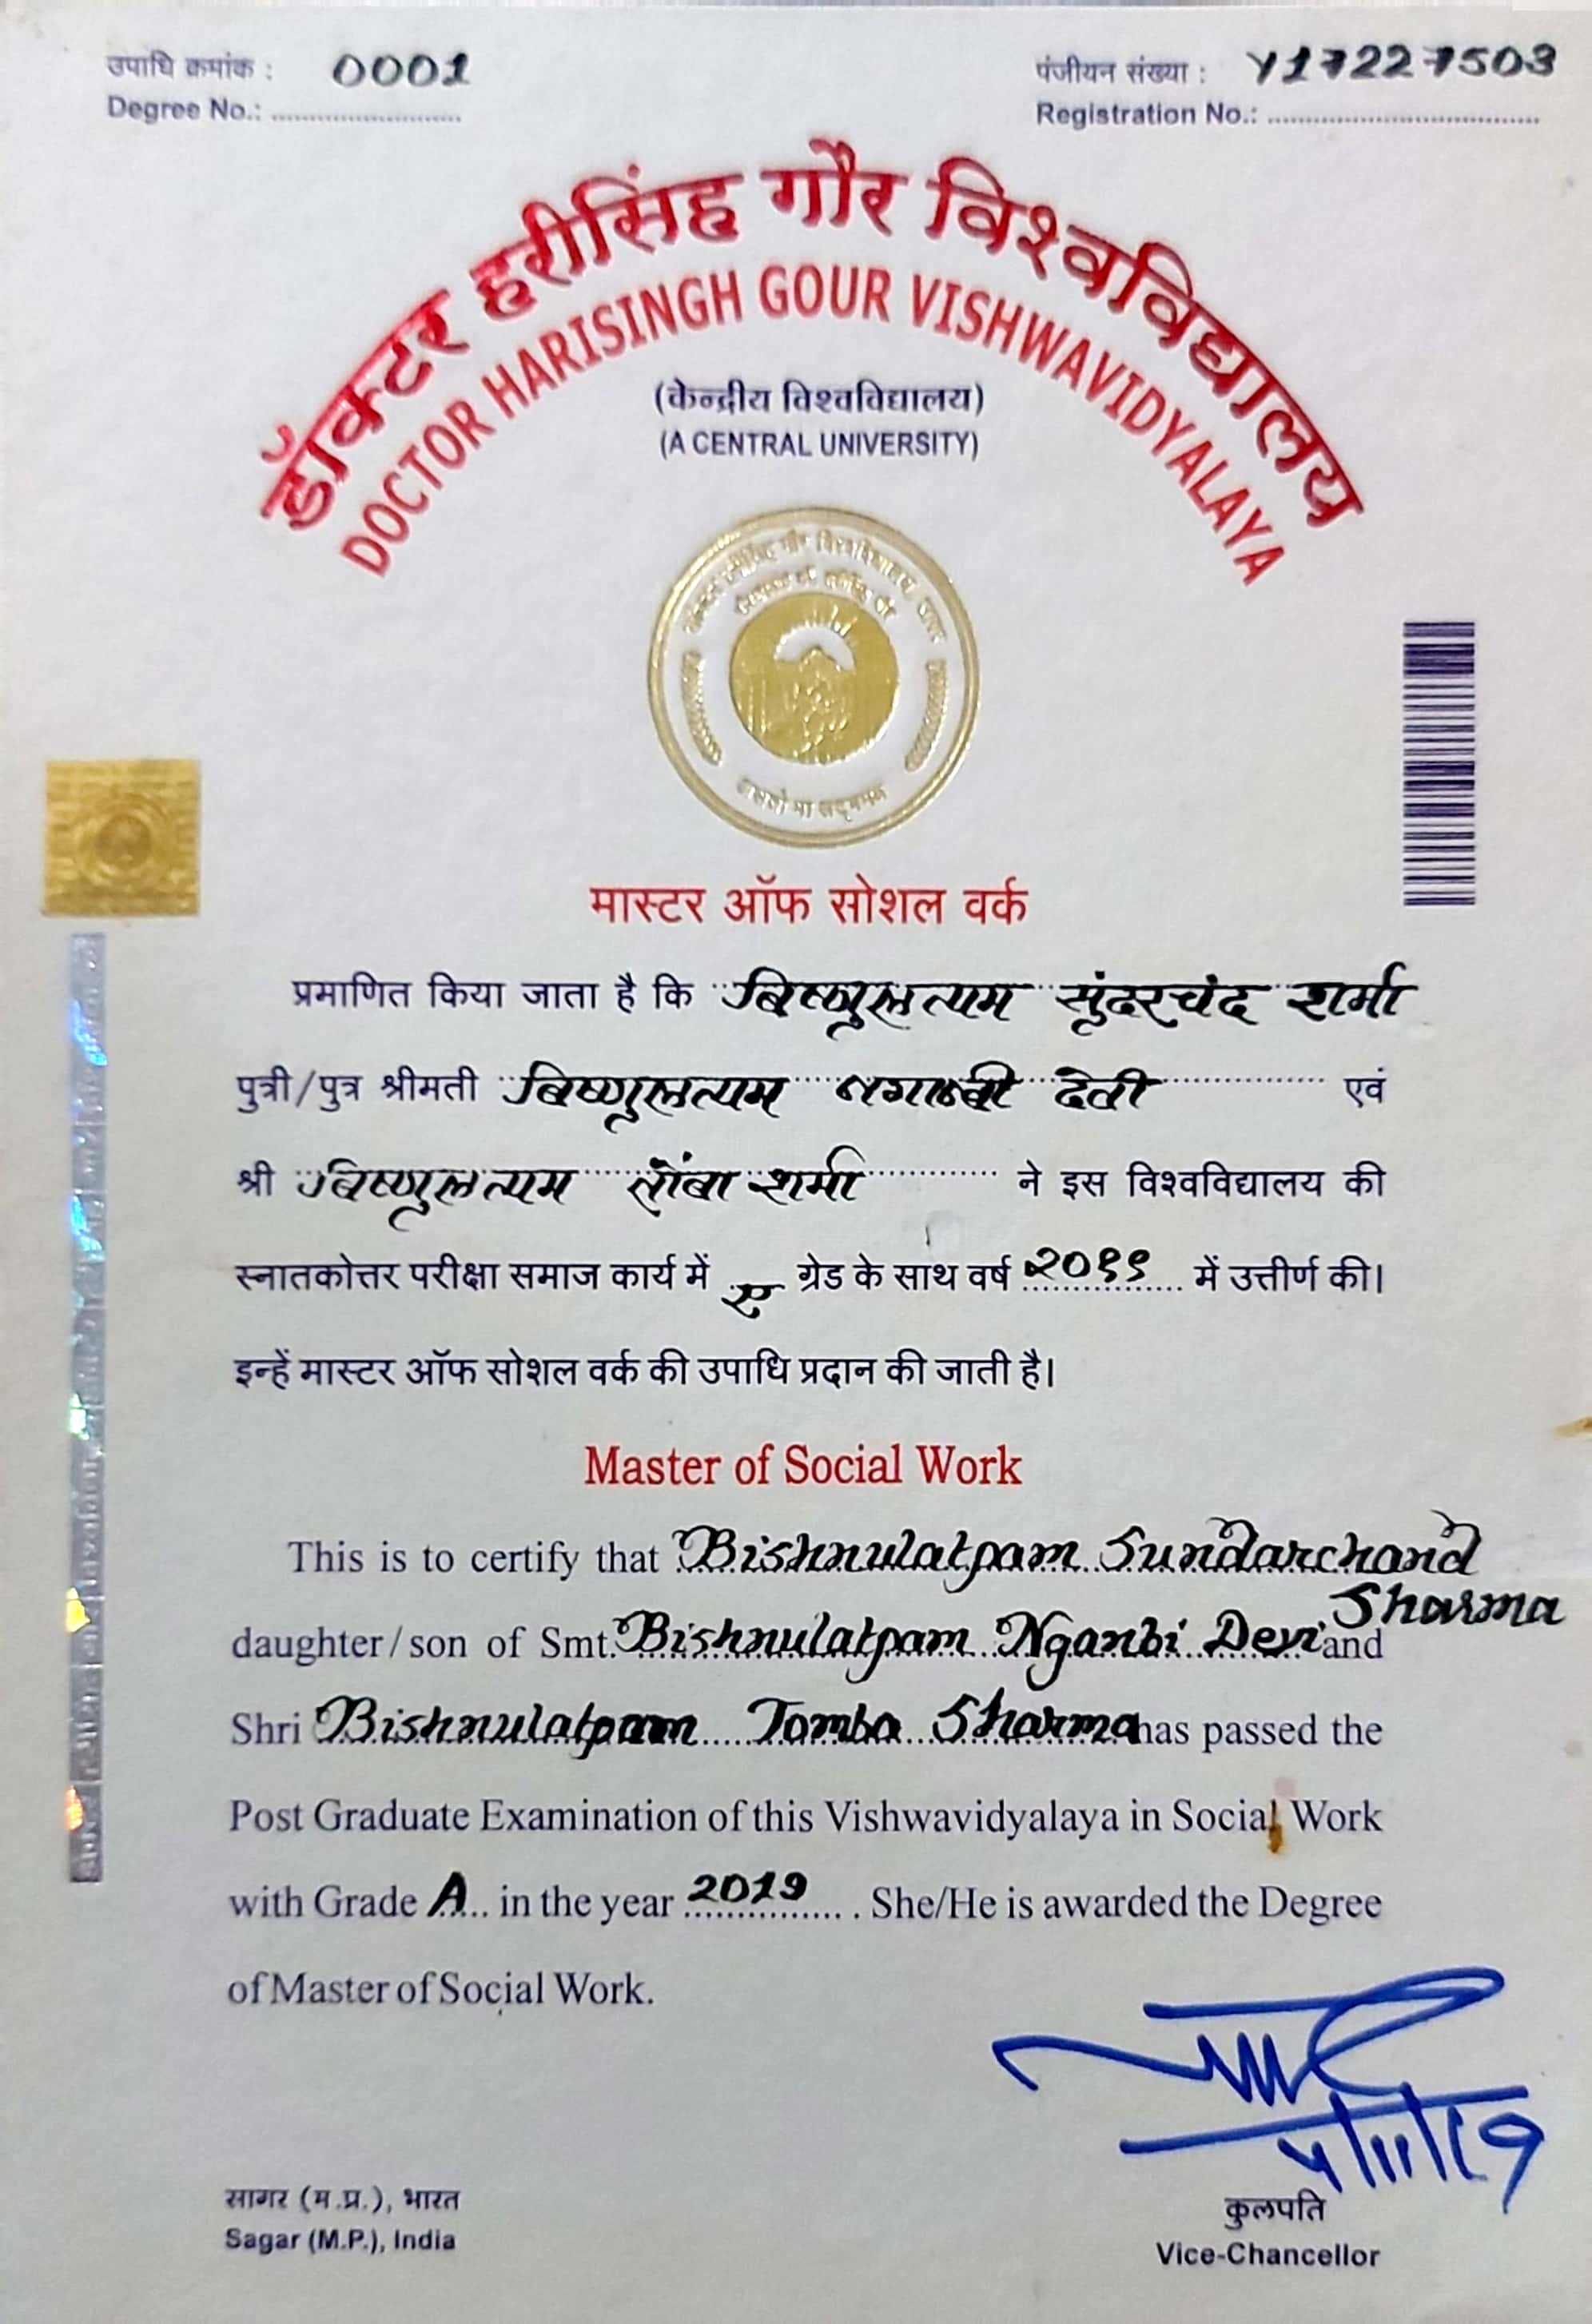 उपाधि क्रमांक : 0001
Degree No.: ............................
पंजीयन संख्या : Y17227503
Registration No.: ........................................
डॉक्टर हरीसिंह गौर विश्वविद्यालय
DOCTOR HARISINGH GOUR VISHWAVIDYALAYA
(केन्द्रीय विश्वविद्यालय)
(A CENTRAL UNIVERSITY)
मास्टर ऑफ सोशल वर्क
प्रमाणित किया जाता है कि बिष्णुलत्पम सुंदरचंद शर्मा
पुत्री/पुत्र श्रीमती बिष्णुलत्पम नगान्बी देवी एवं
श्री बिष्णुलत्पम तोंबा शर्मा ने इस विश्वविद्यालय की
स्नातकोत्तर परीक्षा समाज कार्य में ए ग्रेड के साथ वर्ष २०१९ में उत्तीर्ण की।
इन्हें मास्टर ऑफ सोशल वर्क की उपाधि प्रदान की जाती है।
Master of Social Work
This is to certify that Bishnulatpam Sundarchand
Sharma
daughter/son of Smt. Bishnulatpam Nganbi Devi and
Shri Bishnulatpam Tomba Sharma has passed the
Post Graduate Examination of this Vishwavidyalaya in Social Work
with Grade A in the year 2019 . She/He is awarded the Degree
of Master of Social Work.
सागर (म.प्र.), भारत
Sagar (M.P.), India
कुलपति
Vice-Chancellor